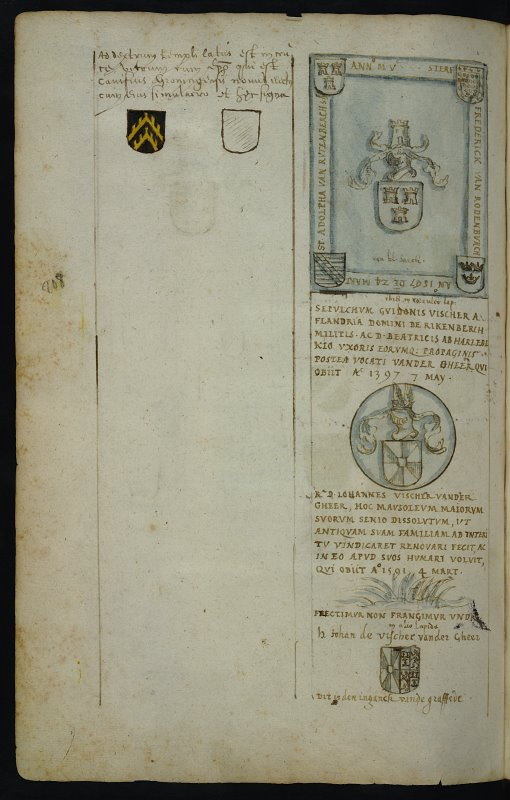 Ad dextrum templi latus est in
vitrum cum qui est
canonicus Groningensis
cum eius simulacro et hec signa
908
ANNO M V STERF
FREDERICK VAN RODENBURCH
AN 1507 DE 24 MARTI
ST ADOLPHA VAN RITZENBERCH
SEPULCHUM GUIDONIS VISCHER A
FLANDRIA DOMINI DE RIKENBERCH
MILITIS. AC D. BEATRICIS AB HARLEBE
KIO VXORIS EORVMQ: PROPAGINIS
POSTEA VOCATI VANDER GHEER QVI
OBIIT Ao 1397 7 MAY.
R. D. IOHANNES VISCHER VANDER
GHEER, HOC MAVSOLEVM MAIORVM
SVORVM SENIO DISSOLVTVM, VT
ANTIQVAM SVAM FAMILIAM AB INTERI
TV VINDICARET RENOVARI FECIT, AC
IN EO APVD SVOS HVMARI VOLVIT,
QVI OBIIT Ao 1591, 4 MART.
FLECTIMVR NON FRANGIMVR VNDIS
in alio lapide
h Johan de vischer vander Gheer
Dit is den inganck vande graffstede